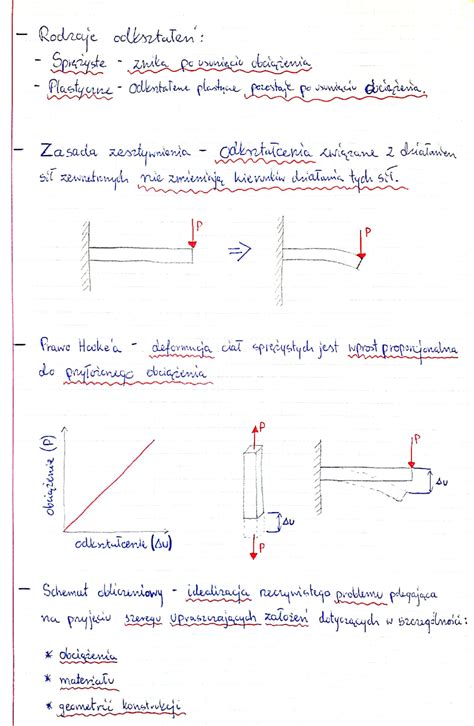 - Rodzaje odkształceń:
- Sprężyste - znika po usunięciu obciążenia
- Plastyczne - Odkształcenie plastyczne pozostaje po usunięciu obciążenia.
- Zasada zesztywnienia - Odkształcenia związane z działaniem
sił zewnętrznych nie zmieniają kierunków działania tych sił.
P
⇒
P
- Prawo Hooke'a - deformacja ciał sprężystych jest wprost proporcjonalna
do przyłożonego obciążenia
obciążenie (P)
odkształcenie (Δu)
P
Δu
P
P
Δu
- Schemat obliczeniowy - idealizacja rzeczywistego problemu polegająca
na przyjęciu szeregu upraszczających założeń dotyczących w szczególności:
* obciążenia
* materiału
* geometrii konstrukcji